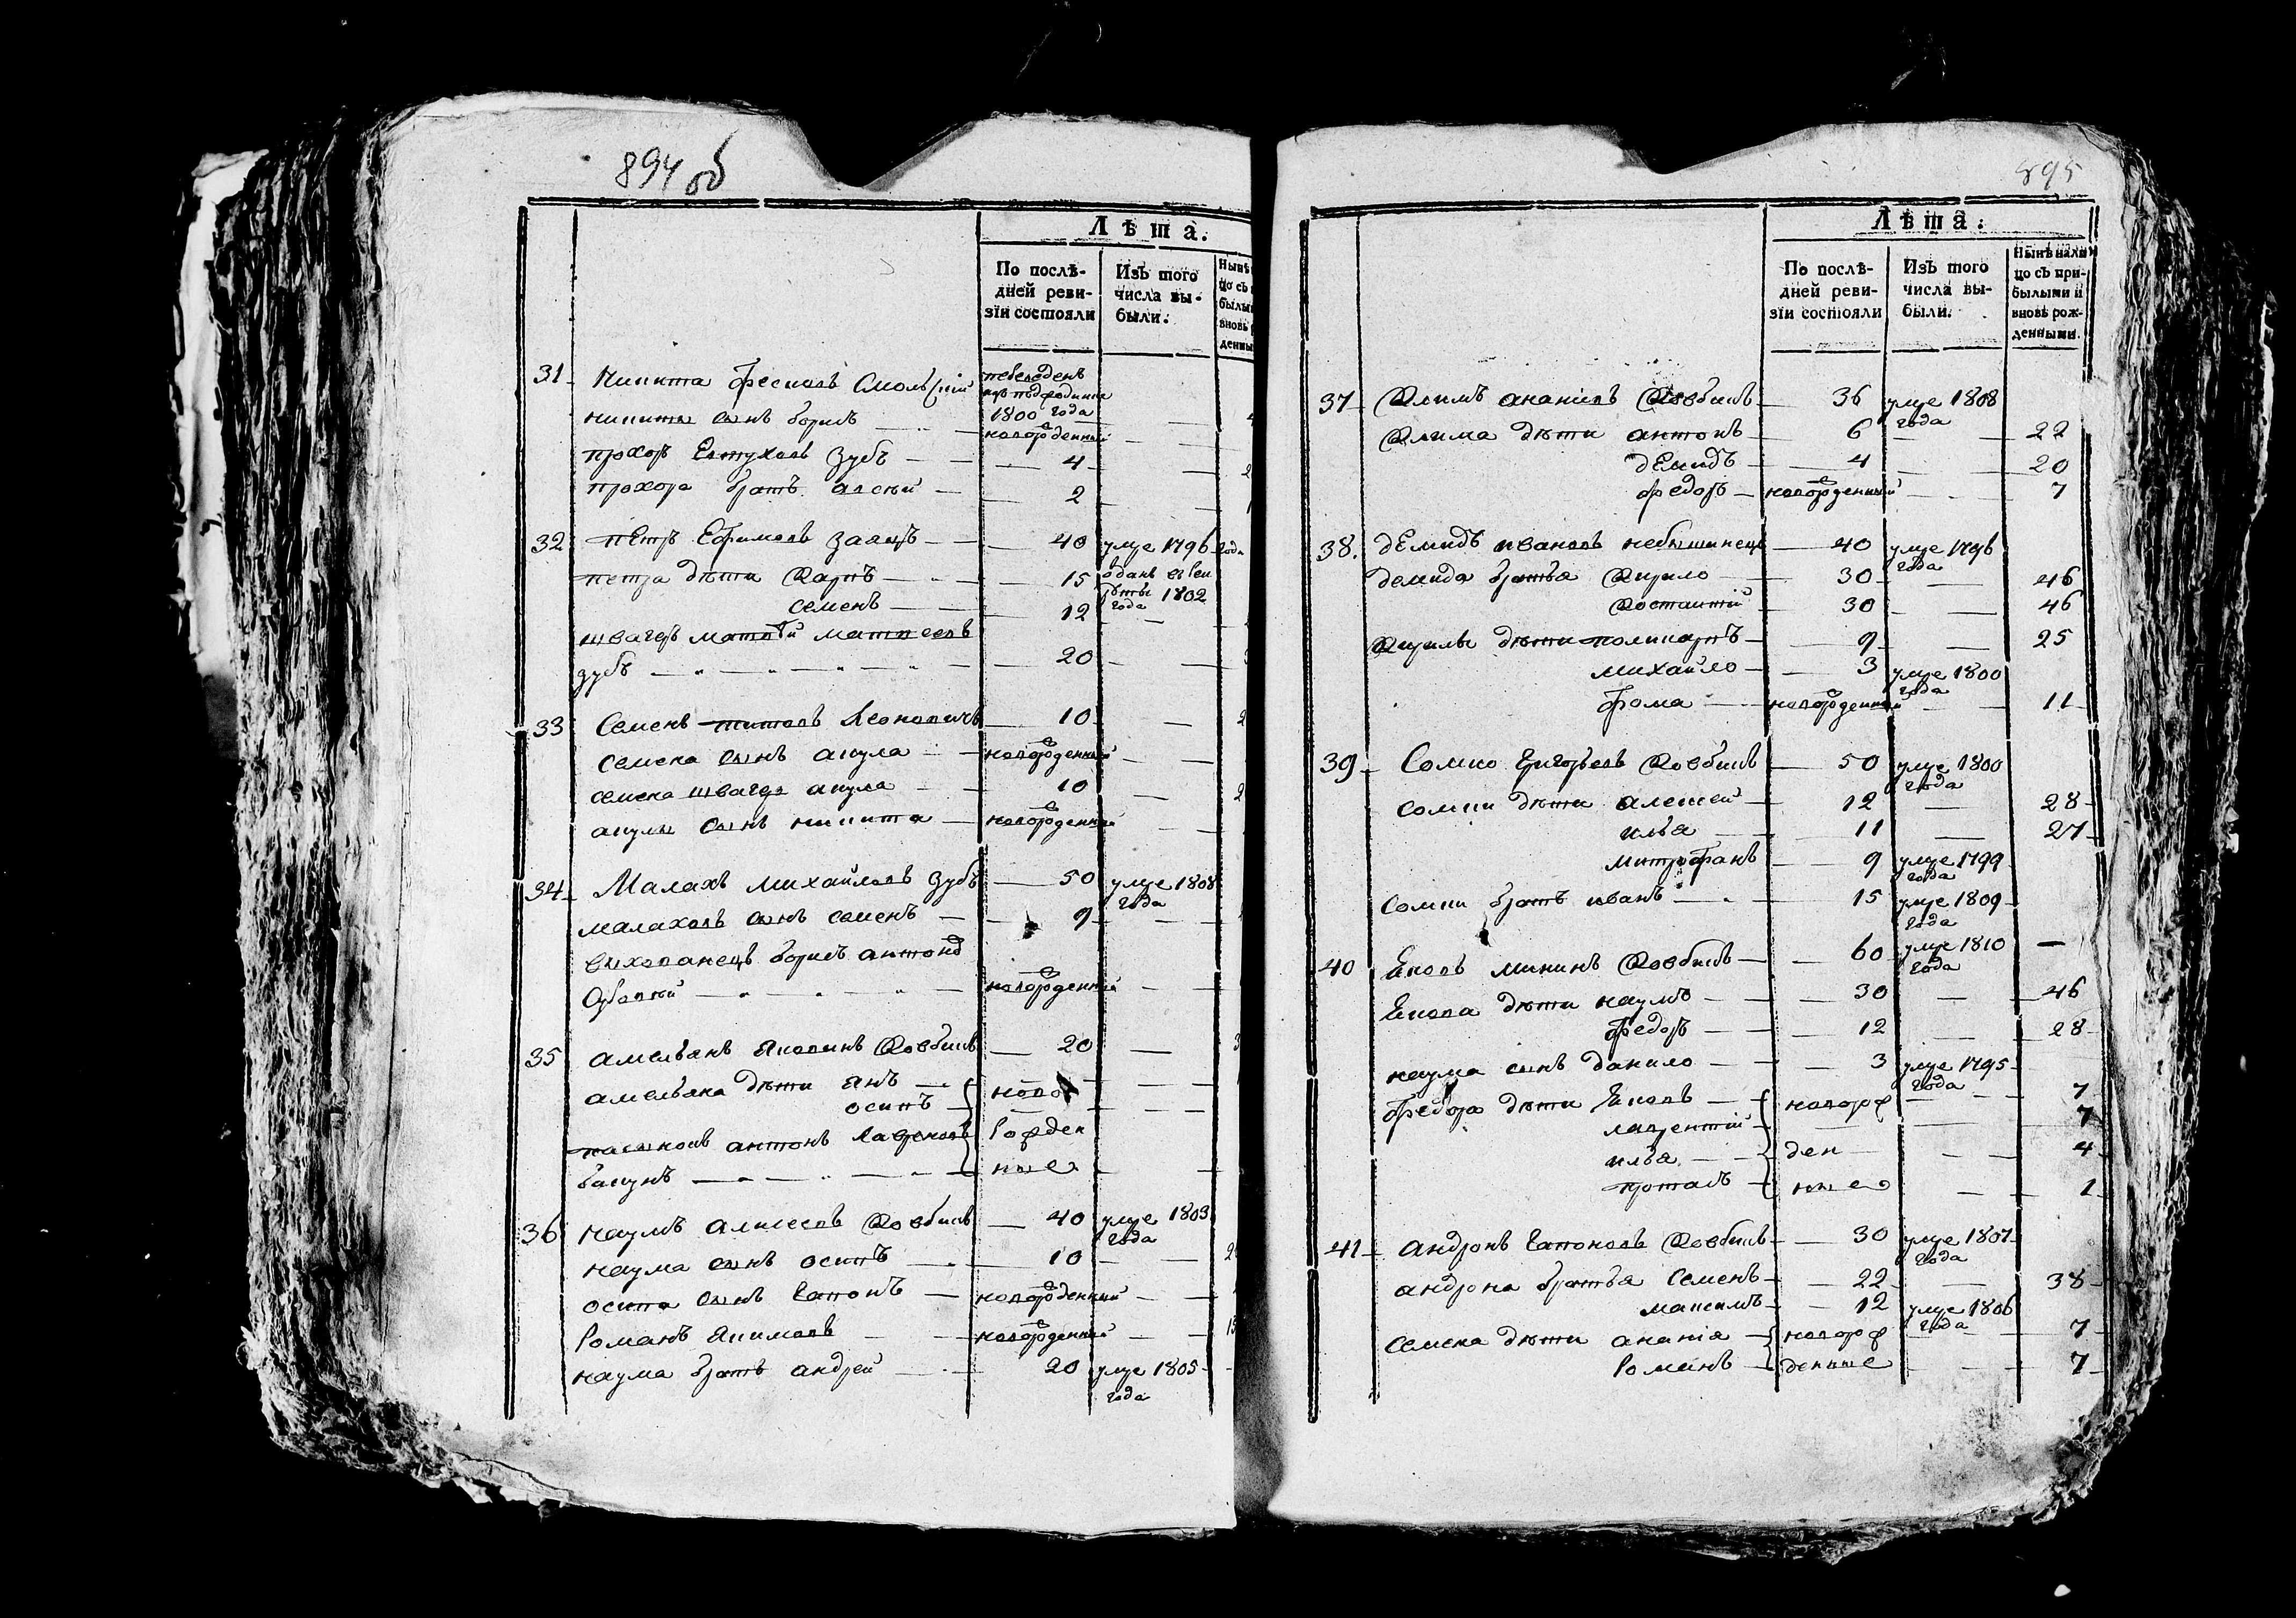 894 об
Лѣта.
По послѣ-
дней реви-
зїи состояли
Изъ того
числа вы-
были.
31 Никита Смольскій
1800 года
никиты сынъ борисъ новорожденный
прохор Евтуховъ Зубъ 4
прохора братъ 2
32 пЕтръ Ефимовъ Заяцъ 40 умре 1796 года
петра дѣти Карпъ 15 1802 года
семенъ 12
швагеръ матвѣй матвеевъ
зубъ 20
33 Семенъ титовъ Леоновичъ 10
семена сынъ акула новорожденный
семена швагеръ акула 10
акулы сынъ никита новорожденный
34 Малахъ михайловъ Зубъ 50 умре 1808 года
малаховъ сынъ семенъ 9
борисъ антоновъ
новорожденный
35 амельянъ Яковинъ Ковбинъ 20
амельяна дѣти янъ ново
осипъ
антонъ рожден
ные
36 наумъ алисеевъ Ковбинъ 40 умре 1803 года
наума сынъ осипъ 10
осипа сынъ Гапонъ новорожденный
Романъ Якимовъ новорожденный
наума братъ андрей 20 умре 1805 года
895
Лѣта:
По послѣ-
дней реви-
зїи состояли
Изъ того
числа вы-
были.
Нынѣ нали
цо съ при-
былыми и
вновь рож-
денными.
37 Климъ ананіевъ Ковбинъ 36 умре 1808 года
Клима дѣти антонъ 6 22
дЕмидъ 4 20
федоръ новорожденный 7
38. дЕмидъ ивановъ небышинецъ 40 умре 1796 года
демида братья Кирило 30 46
Костантій 30 46
Кирилы дѣти поликарпъ 9 25
михайло 3 умре 1800 года
фома новорожденный 11
39 Сомко Григорьевъ Ковбинъ 50 умре 1800 года
сомки дѣти алексей 12 28
илья 11 27
митрофанъ 9 умре 1799 года
сомки братъ иванъ 15 умре 1809 года
40 Яковъ мининъ Ковбинъ 60 умре 1810 года
Якова дѣти наумъ 30 46
федоръ 12 28
наума сынъ данило 3 умре 1795 года
федора дѣти Яковъ новорож 7
лаврентій 7
илья ден 4
ные 1
41 андронъ Гапоновъ Ковбинъ 30 умре 1807 года
андрона братья Семенъ 22 38
максимъ 12 умре 1806 года
семена дѣти ананія новорож 7
Романъ денные 7